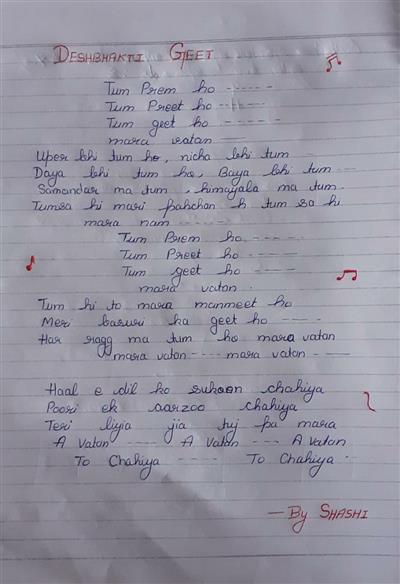 DESHBHAKTI GEET
Tum Prem ho ------
Tum Preet ho -----
Tum geet ho -----
mara vatan ---
Uper bhi tum ho, nicha bhi tum --
Daya bhi tum ho, Baya bhi tum ---
Samandar ma tum, himayala ma tum -
Tumsa hi mari pahchan h tum sa hi
mara nam -----
Tum Prem ho ----
Tum Preet ho ----
Tum geet ho ----
mara vaton .
Tum hi to mara manmeet ho
Meri basuri ka geet ho ----
Har ragg ma tum ho mara vatan
mara vatan ---- mara vatan ----
Haal e dil ko sukoon chahiya
Poori ek aarzoo chahiya
Teri liyia jia tuj pa mara
A Vatan ---- A vatan --- A Vatan
To Chahiya ----- To Chahiya .
— By SHASHI